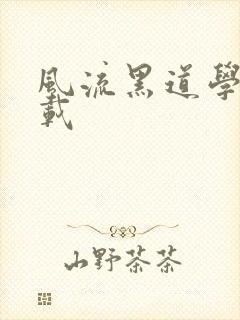 風流黑道學
載
山野茶茶